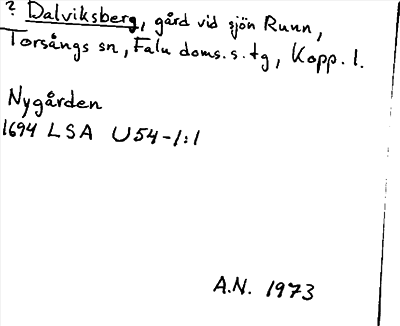 ? Dalviksberg, gård vid sjön Runn,
Torsångs sn, Falu doms. s. tg, Kopp. l.
Nygården
1694 LSA U54-1:1
A.N. 1973